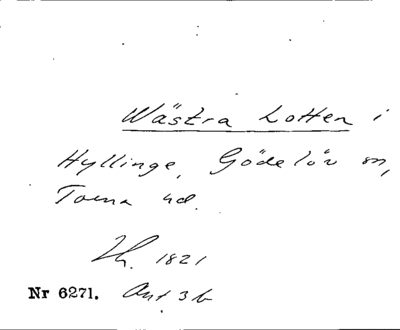 Wästra Lotten i
Hyllinge, Gödelöv sn,
Torna hd.
Lh. 1821
Nr 6271. Avt 3 b